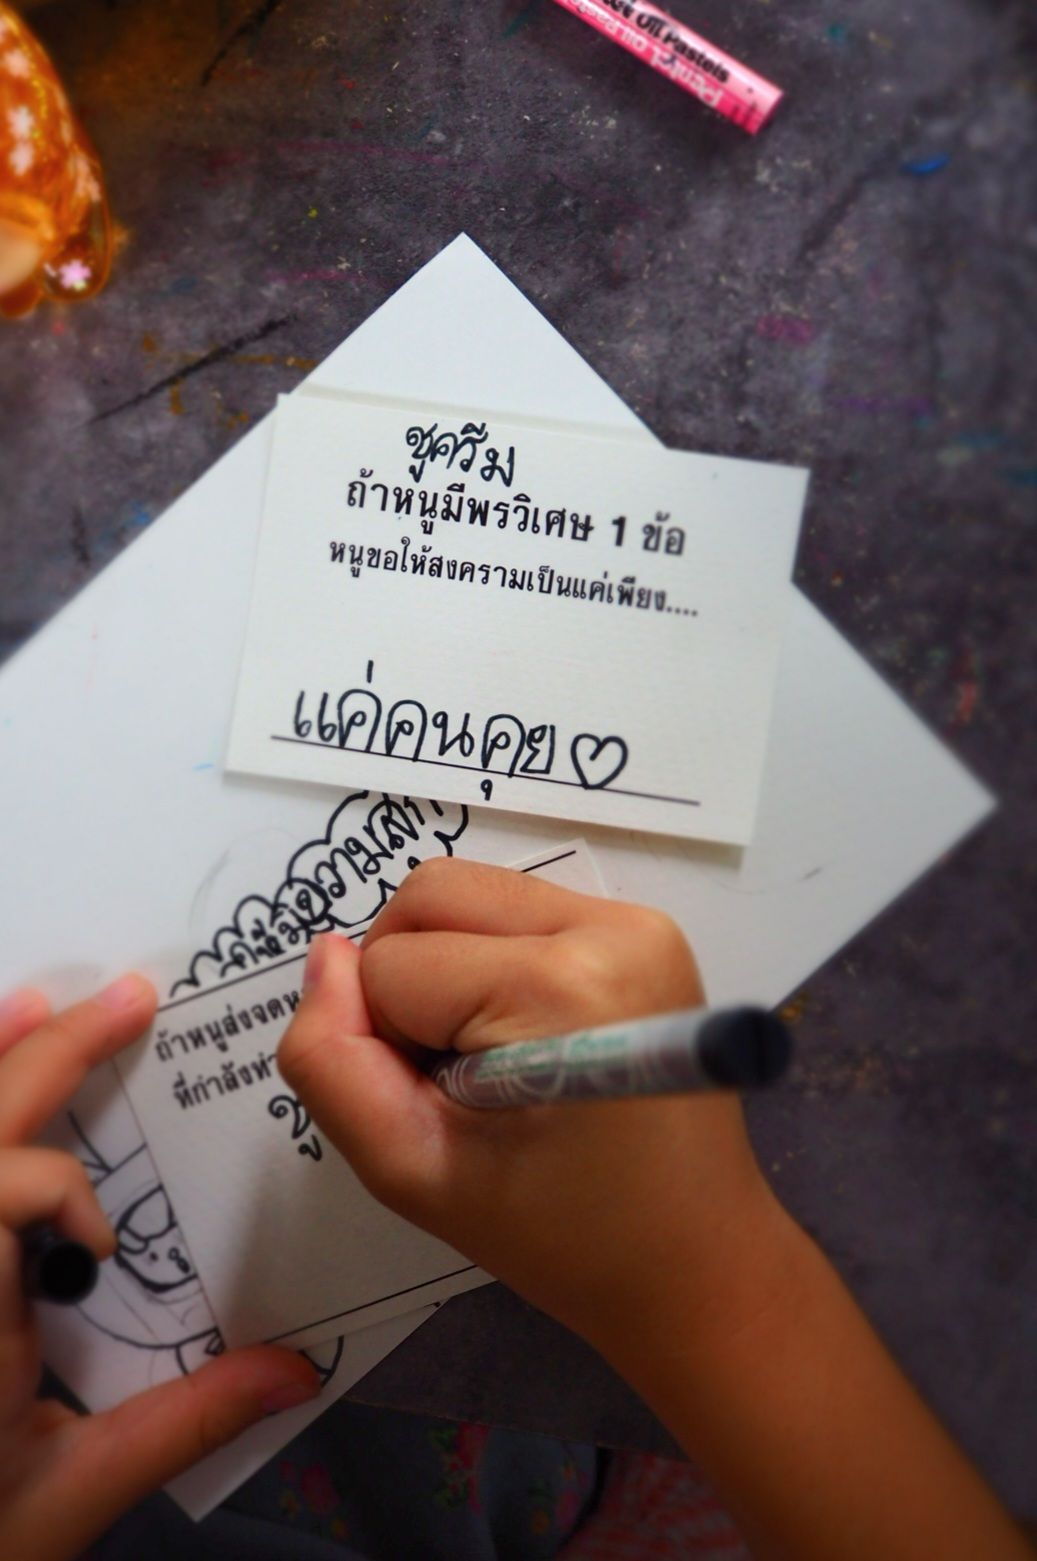 Oil Pastels
Pentel
ชูครีม
ถ้าหนูมีพรวิเศษ 1 ข้อ
หนูขอให้สงครามเป็นแค่เพียง....
แค่คนคุย♡
ถ้าหนูส่งจดห
ที่กำลังทำ
ชู